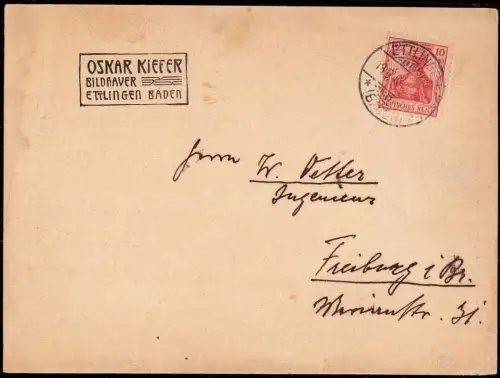 OSKAR KIEFER
BILDHAVER
ETTLINGEN BADEN
ETTLIN
10
DEUTSCHES REICH
Herrn W. Vetter
Ingenieur
Freiburg i Br.
31.